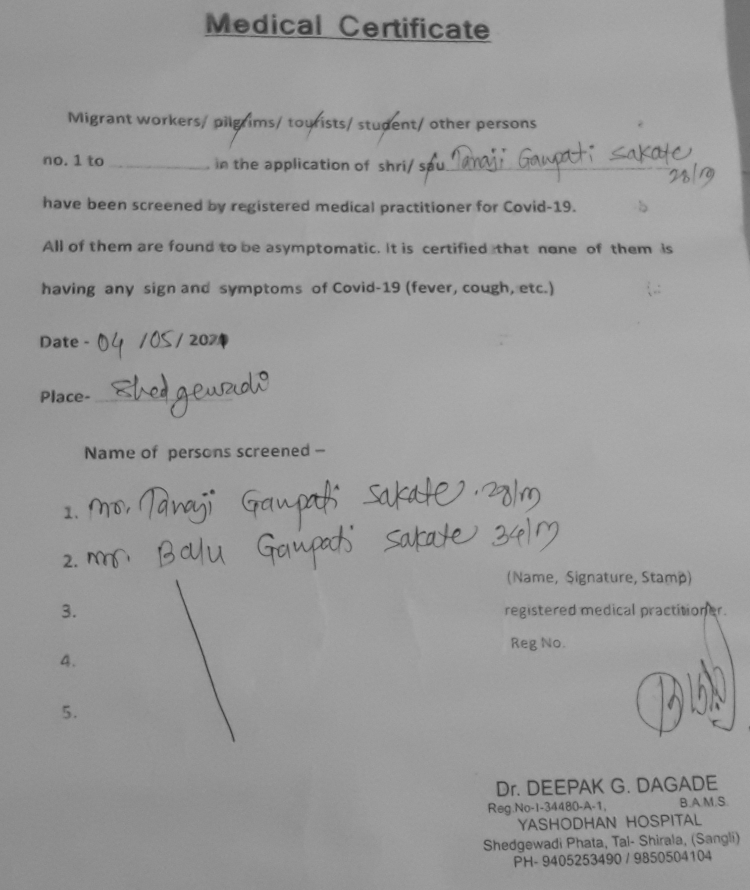 Medical Certificate
Migrant workers/ pilgrims/ tourists/ student/ other persons
no. 1 to .................... in the application of shri/ sau Tanaji Ganpati Sakate
28/M
have been screened by registered medical practitioner for Covid-19.
All of them are found to be asymptomatic. It is certified that none of them is
having any sign and symptoms of Covid-19 (fever, cough, etc.)
Date - 04 /05/ 2021
Place- Shedgewadi
Name of persons screened –
1. Mr. Tanaji Ganpati Sakate. 28/M
2. Mr. Balu Ganpati Sakate 34/M
(Name, Signature, Stamp)
3.
registered medical practitioner.
Reg No.
4.
5.
Dr. DEEPAK G. DAGADE
Reg.No-I-34480-A-1, B.A.M.S.
YASHODHAN HOSPITAL
Shedgewadi Phata, Tal- Shirala, (Sangli)
PH- 9405253490 / 9850504104